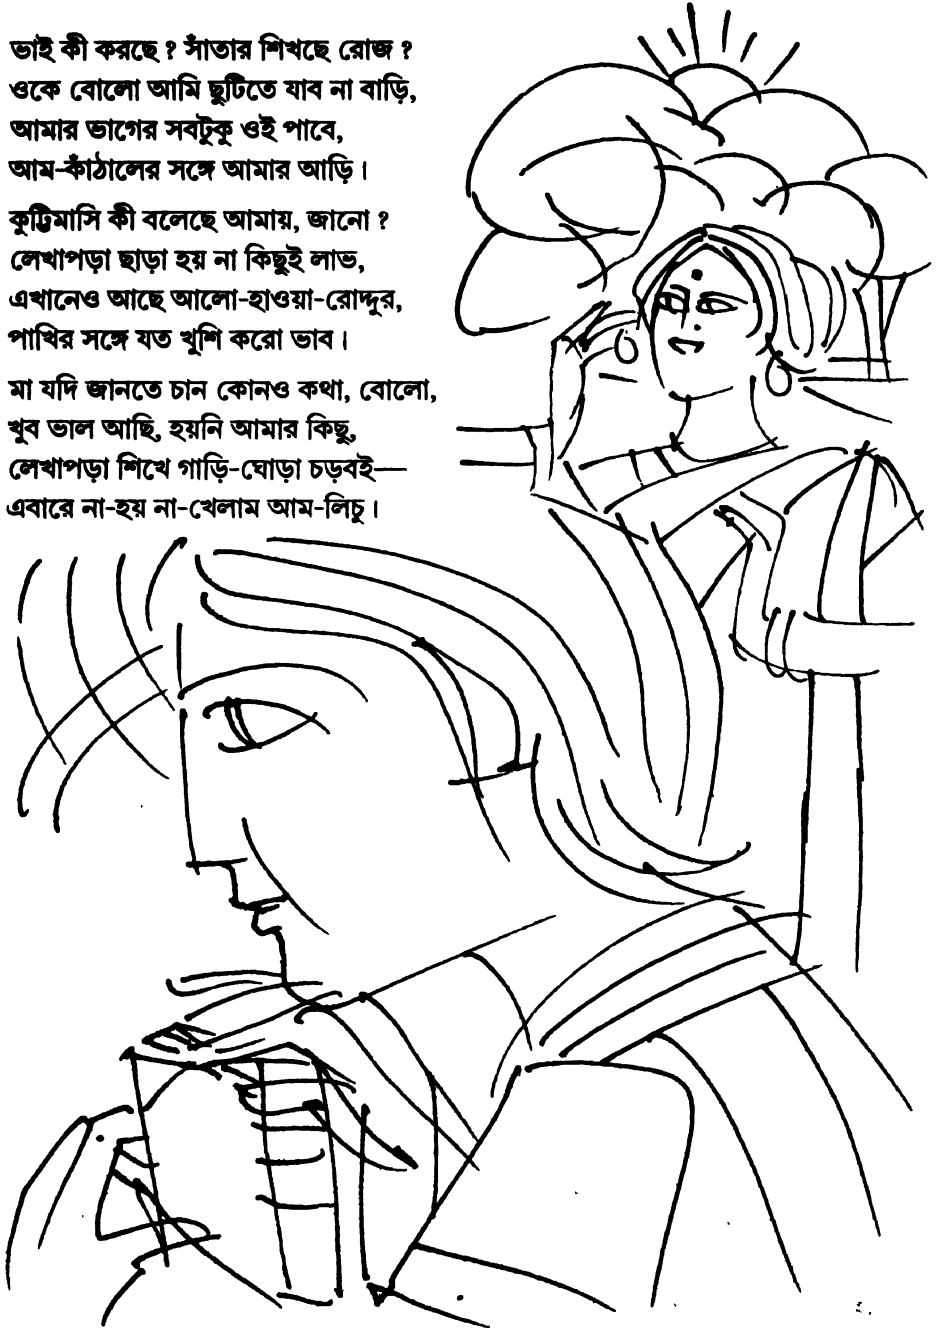 ভাই কী করছে ? সাঁতার শিখছে রোজ ?
ওকে বোলো আমি ছুটিতে যাব না বাড়ি,
আমার ভাগের সবটুকু ওই পাবে,
আম-কাঁঠালের সঙ্গে আমার আড়ি।
কুট্টিমাসি কী বলেছে আমায়, জানো ?
লেখাপড়া ছাড়া হয় না কিছুই লাভ,
এখানেও আছে আলো-হাওয়া-রোদ্দুর,
পাখির সঙ্গে যত খুশি করো ভাব।
মা যদি জানতে চান কোনও কথা, বোলো,
খুব ভাল আছি, হয়নি আমার কিছু,
লেখাপড়া শিখে গাড়ি-ঘোড়া চড়বই—
এবারে না-হয় না-খেলাম আম-লিচু।